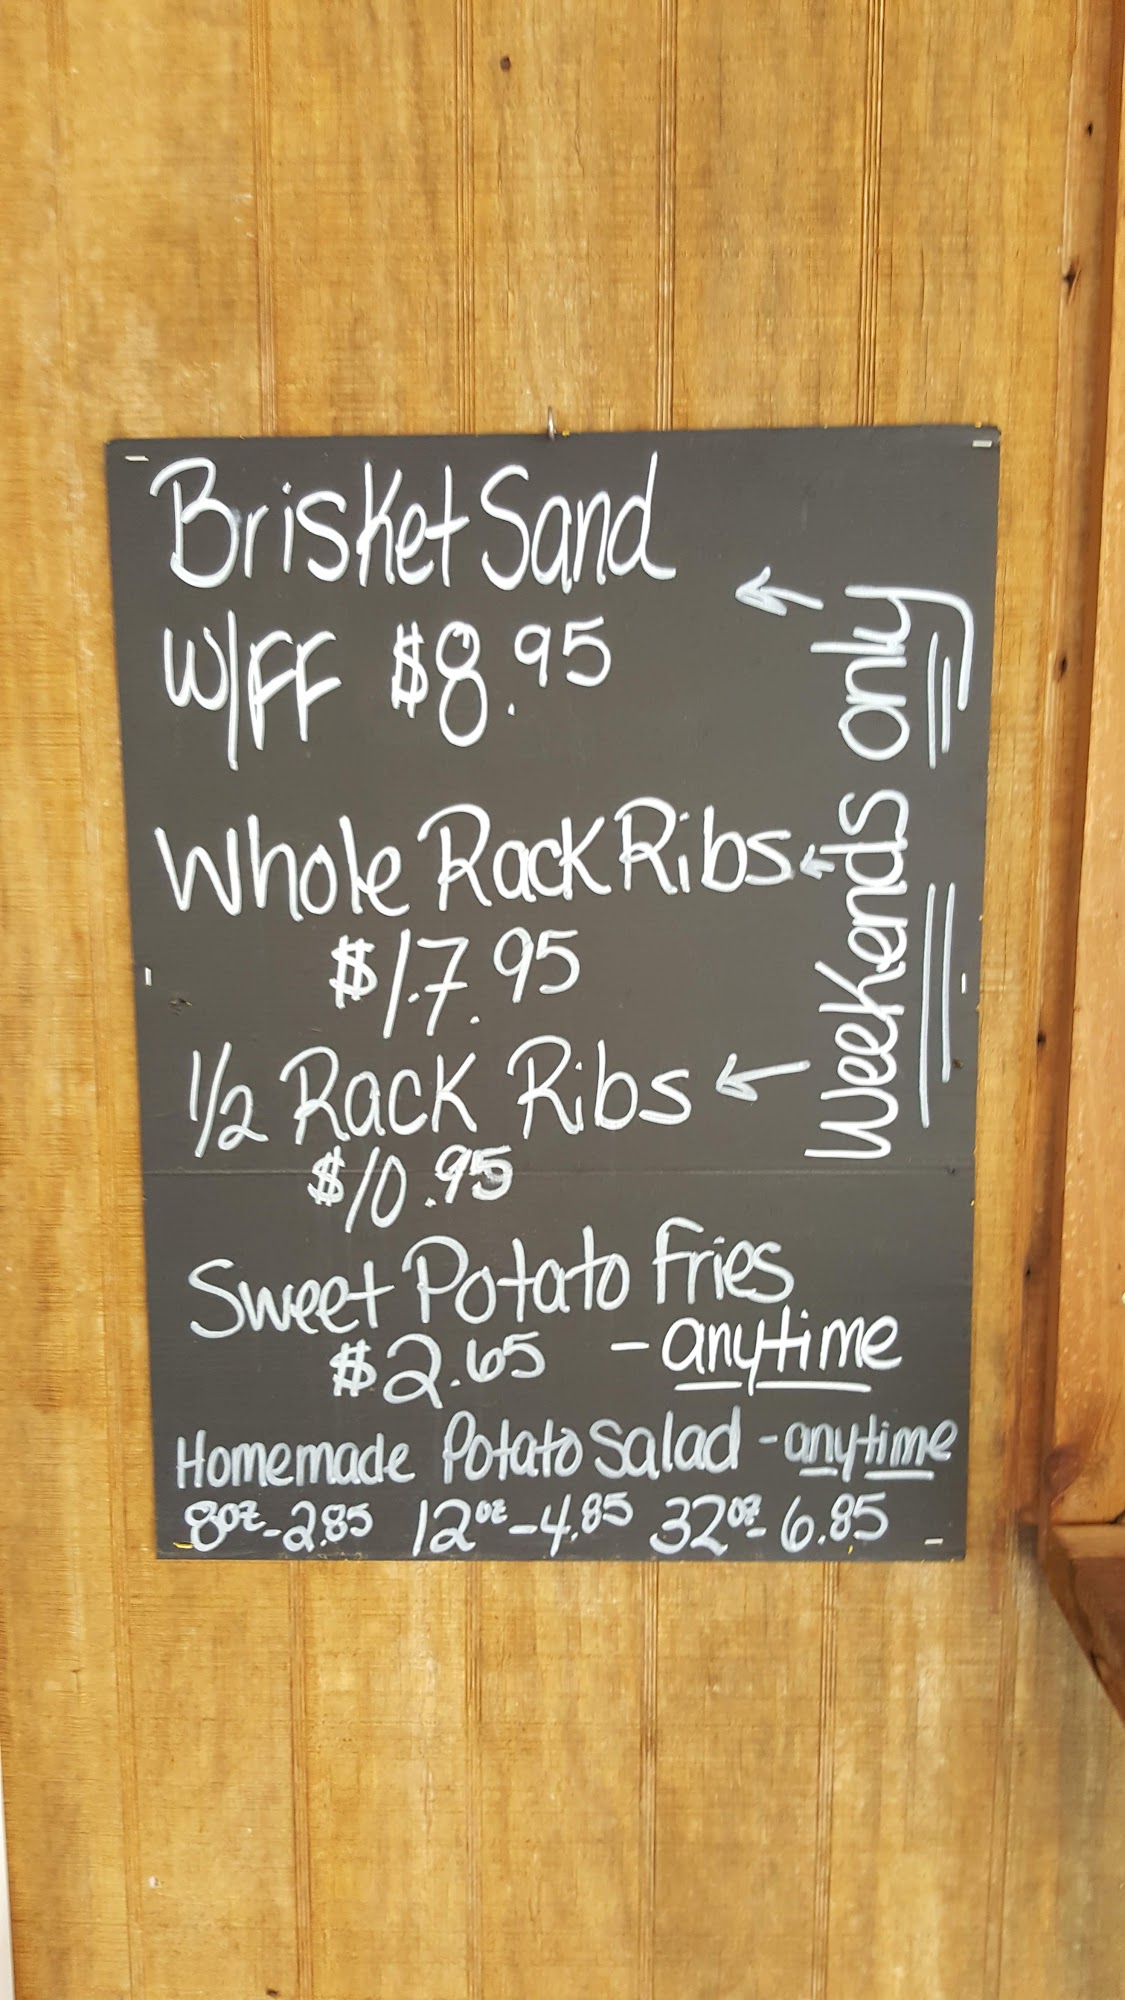 Brisket Sand
W/FF $8.95
Whole Rack Ribs
$17.95
1/2 Rack Ribs
$10.95
Weekends only
Sweet Potato Fries
$2.65 - anytime
Homemade Potato Salad - anytime
8oz - 2.85 12oz - 4.85 32oz - 6.85